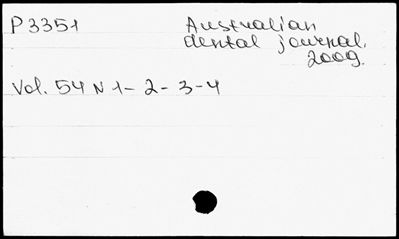 P3351
Australian
dental journal.
2009.
Vol. 54 N 1- 2- 3-4